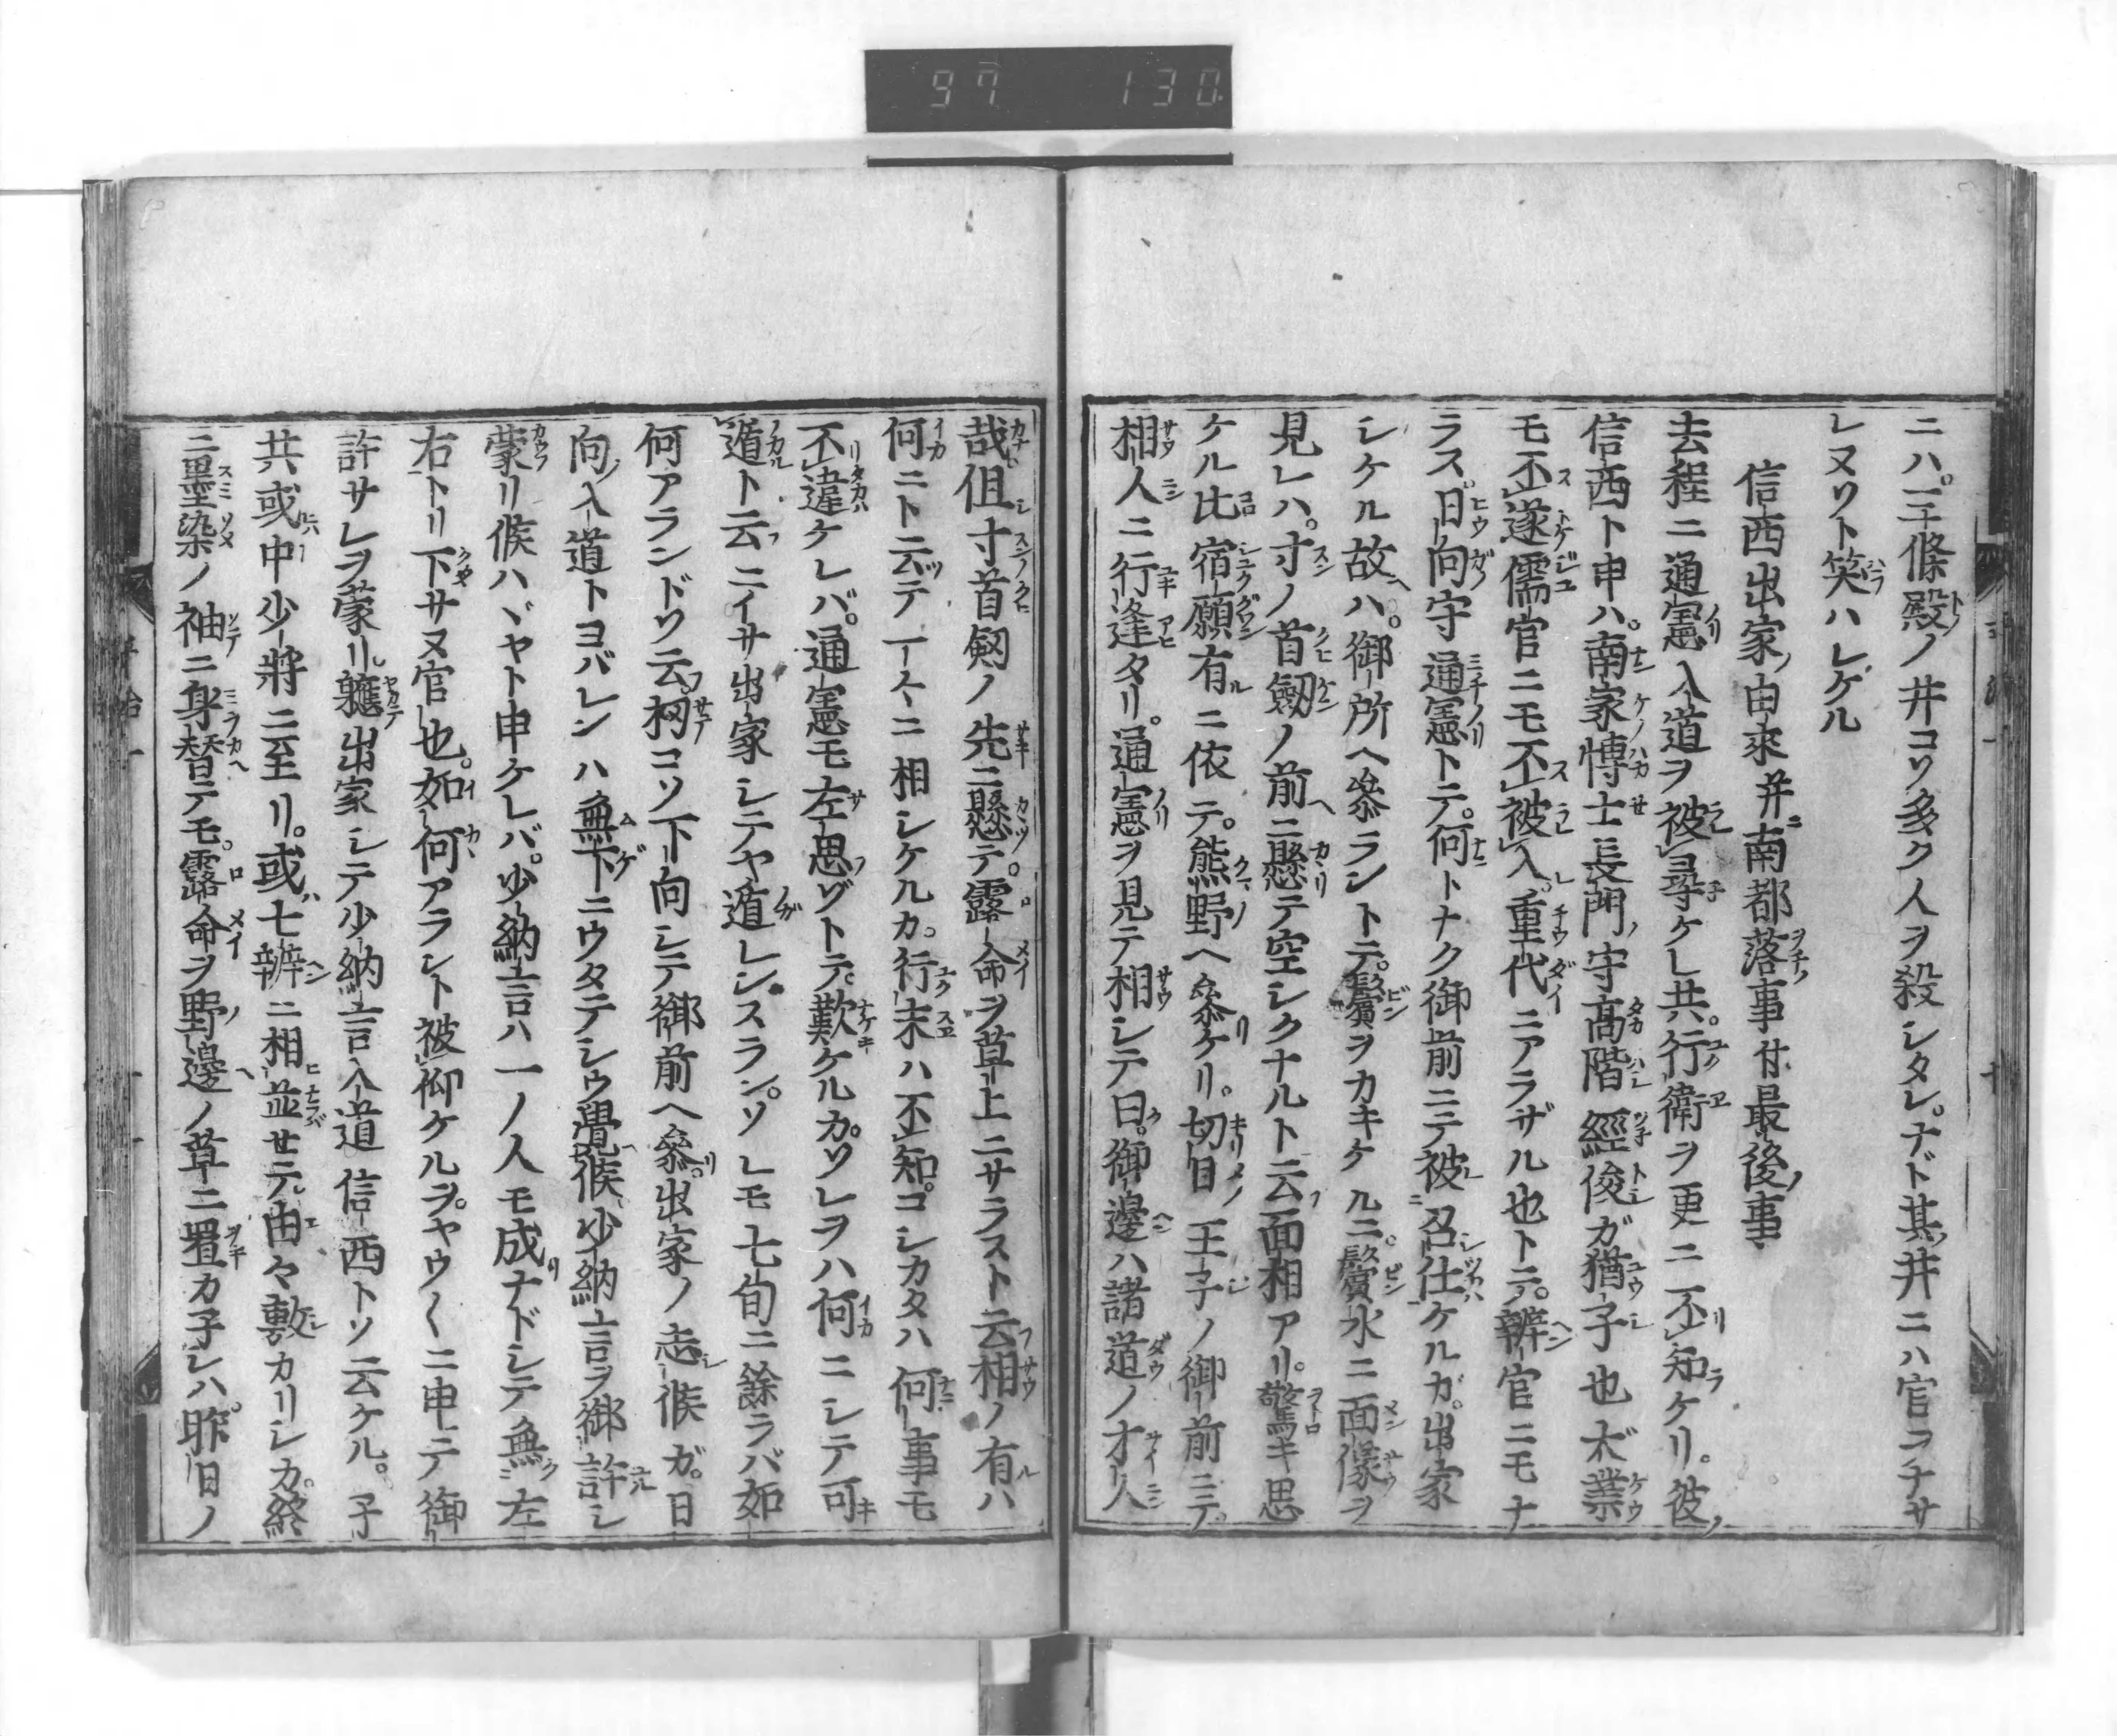 97 130
ニハ。三條殿ノ井コソ多ク人ヲ殺シタレ。ナド其ノ井ニハ官ヲナサ
レヌソト笑ハレケル
信西出家ノ由來并ニ南都落事付最後ノ事
去程ニ通憲入道ヲ被尋ケレ共。行衛ヲ更ニ不知ケリ。彼ノ
信西ト申ハ。南家ノ博士長門ノ守高階經俊ガ猶子也大業
モ不遂儒官ニモ不被入。重代ニアラザル也トテ。辨官ニモナ
ラス。日向守通憲トテ。何トナク御前ニテ被召仕ケルガ。出家
シケル故ハ。御所ヘ參ラントテ。鬢ヲカキケルニ。鬢水ニ面像ヲ
見レハ。寸ノ首劔ノ前ニ懸テ空シクナルト云面相アリ。驚キ思
ケル比宿願有ルニ依テ。熊野ヘ參ケリ。切目ノ王子ノ御前ニテ。
相人ニ行逢タリ。通憲ヲ見テ相シテ曰。御邊ハ諸道ノ才人
哉但シ寸ノ首劔ノ先ニ懸テ。露命ヲ草上ニサラスト云相ノ有ルハ
何ニト云テ一々ニ相シケルカ。行末ハ不知。コシカタハ何事モ
不違ケレバ。通憲モ左思ゾトテ。歎ケルカ。ソレヲハ何ニシテ可キ
遁ト云ニイサ出家シテヤ遁レンスラン。ソレモ七旬ニ餘ラバ如
何アランドソ云。扨コソ下向シテ御前ヘ參リ。出家ノ志候ガ。日
向ノ入道トヨバレンハ無下ニウタテシウ覺候少納言ヲ御許シ
蒙リ候ハヾヤト申ケレバ。少納言ハ一ノ人モ成ナドシテ無左
右トリ下サヌ官也。如何アラント被仰ケルヲ。ヤウ〱ニ申テ御
許サレヲ蒙リ。軈出家シテ少納言入道信西トソ云ケル。子
共或中少將ニ至リ。或ハ七辨ニ相並セテ。由々敷カリシカ。終
ニ墨染ノ袖ニ身ヲ替テモ。露命ヲ野邊ノ草ニ置カ子シハ。昨日ノ